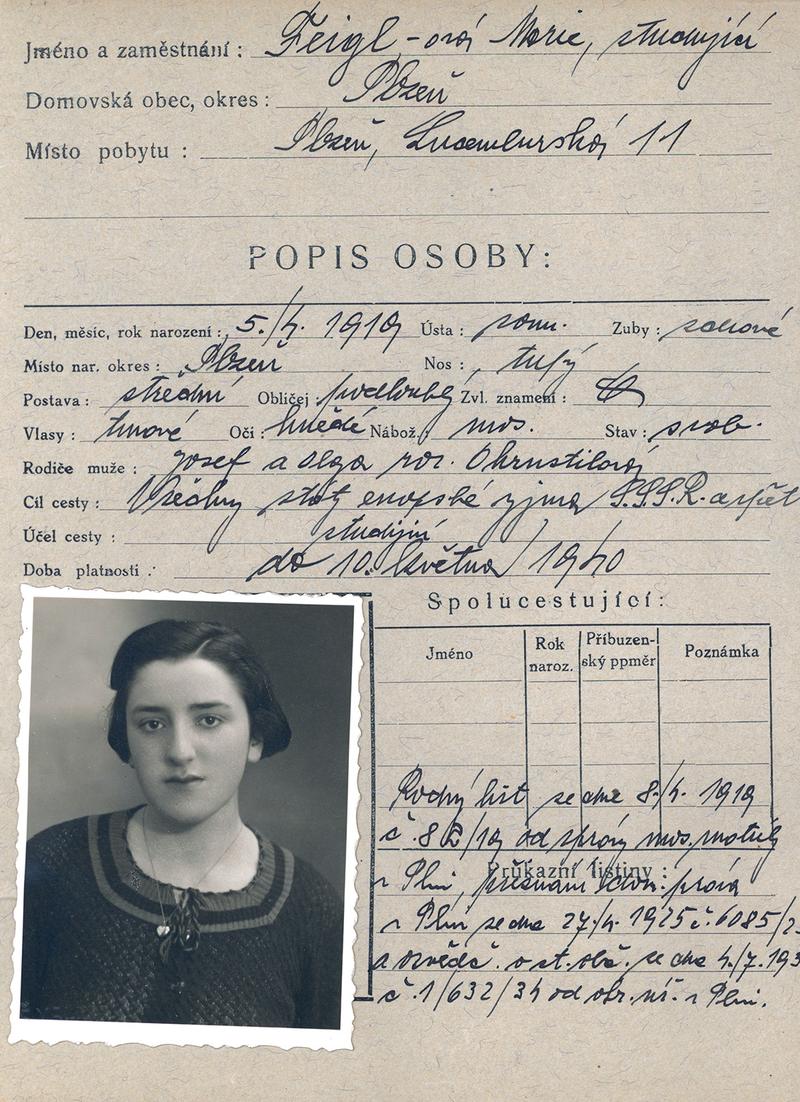 Jméno a zaměstnání : Feigl-ová Marie, studující
Domovská obec, okres : Plzeň
Místo pobytu : Plzeň, Lucemburská 11
POPIS OSOBY:
Den, měsíc, rok narození : 5./4. 1919 Ústa : soum. Zuby : zdravé
Místo nar. okres : Plzeň Nos : tupý
Postava : střední Obličej : podlouhlý Zvl. znamení :
Vlasy : tmavé Oči : hnědé Nábož. mos. Stav : svob.
Rodiče muže : Josef a Olga roz.
Cíl cesty : Všechny státy evropské vyjma S.S.S.R. a zpět
Účel cesty : studijní
Doba platnosti : do 10. května 1940
Spolucestující:
Jméno Rok naroz. Příbuzenský ppměr Poznámka
Rodný list ze dne 8./4. 1919
č. 82/19 od správy mos. matriky
Průkazní listiny :
v Plzni, přiznání dom. práva
v Plzni ze dne 27./4. 1925 č. 6085/2
a osvědč. o st. obč. ze dne 4./7. 193
č. 1/632/34 od okr. úř. v Plzni.